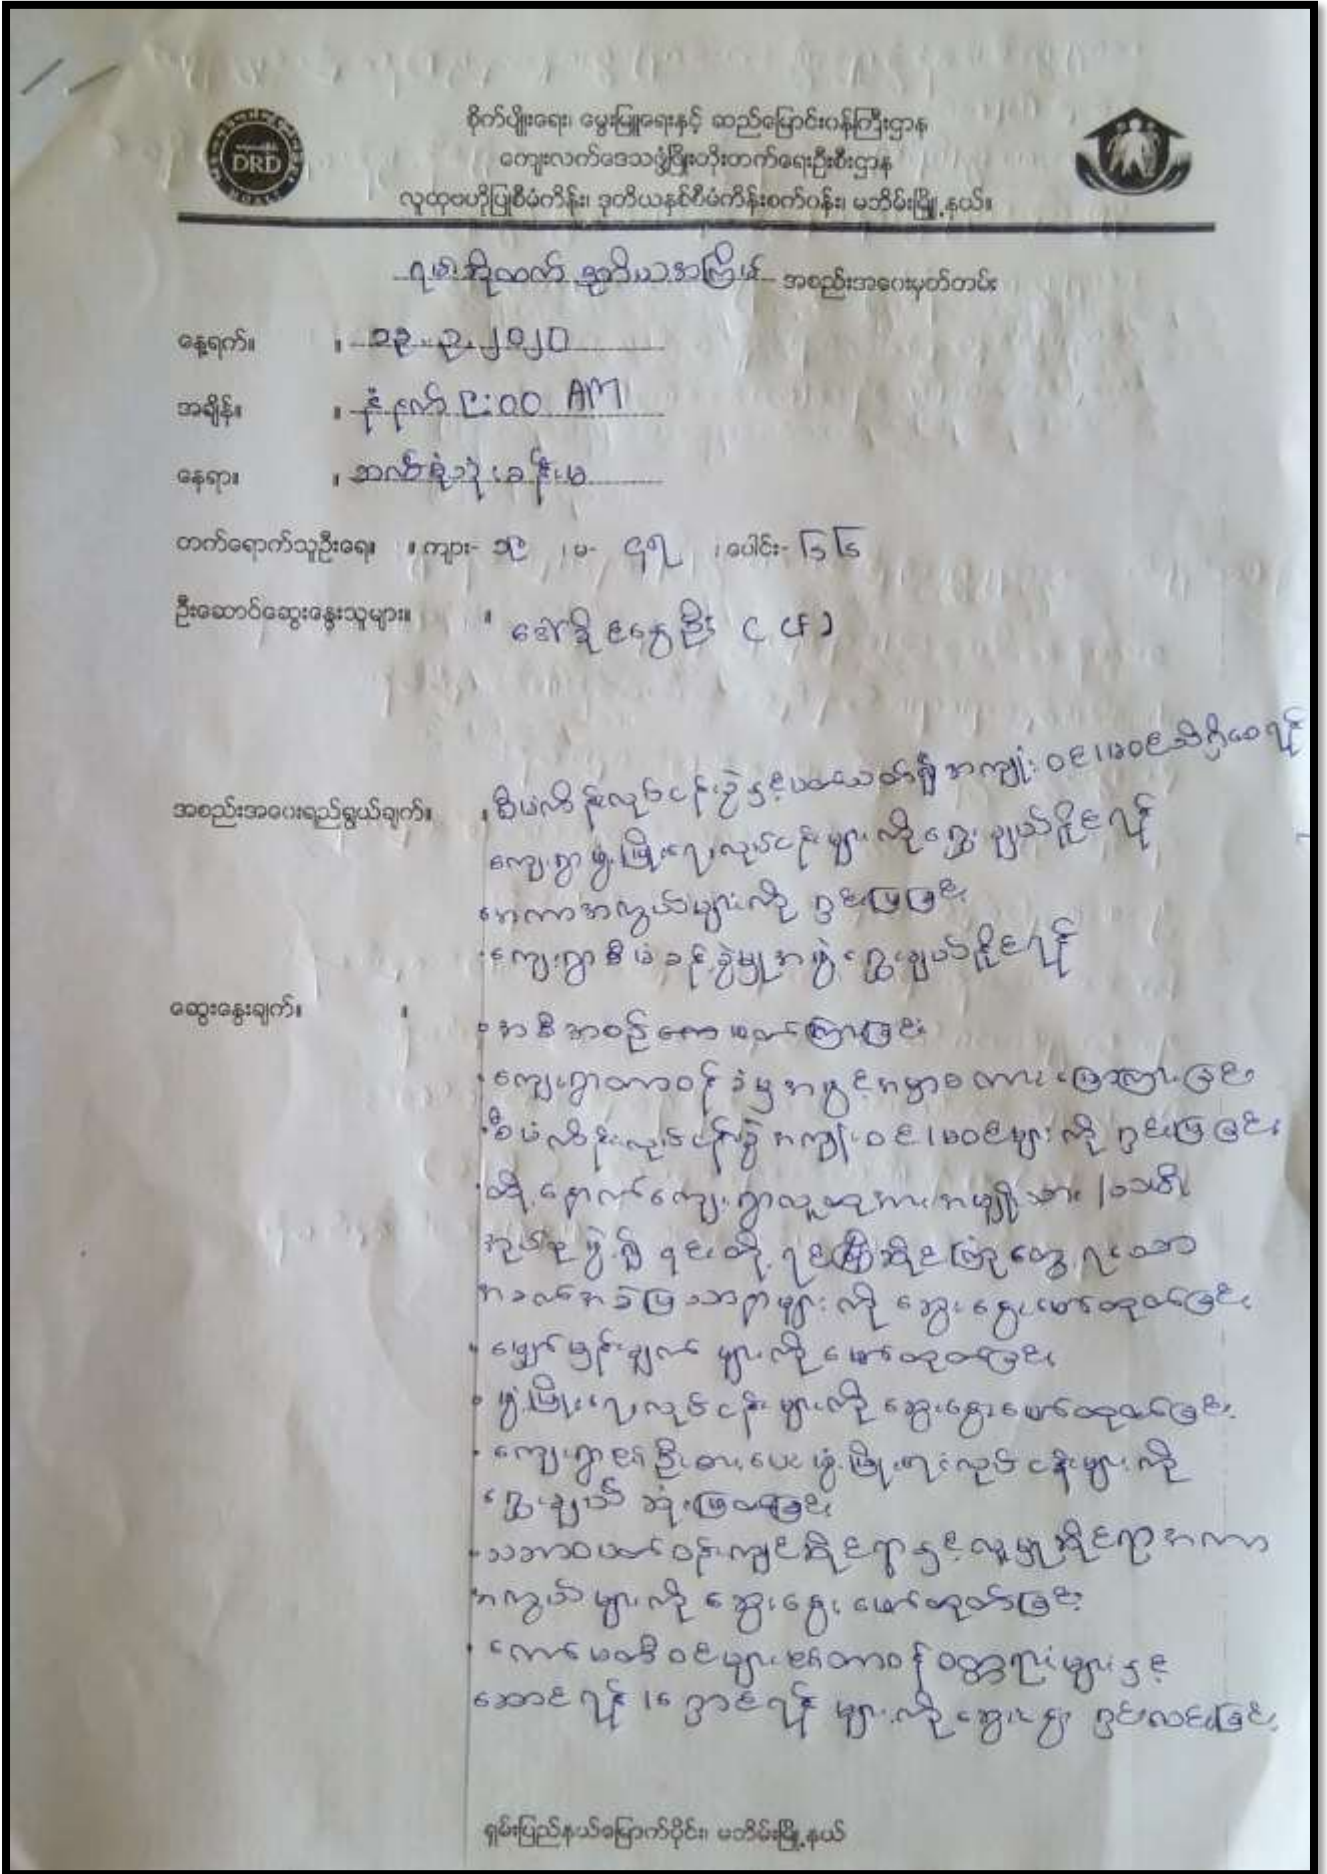 စိုက်ပျိုးရေး၊ မွေးမြူရေးနှင့် ဆည်မြောင်းဝန်ကြီးဌာန
ကျေးလက်ဒေသဖွံ့ဖြိုးတိုးတက်ရေးဦးစီးဌာန
လူထုဗဟိုပြုစီမံကိန်း၊ ဒုတိယနှစ်စီမံကိန်းစက်ဝန်း၊ မဘိမ်းမြို့နယ်။
DRD
ဒုတိယအကြိမ် အစည်းအဝေးမှတ်တမ်း
နေ့ရက်။ ။ ၁၃.၃.၂၀၂၀
အချိန်။ ။ နံနက် ၉:၀၀ AM
နေရာ။ ။
တက်ရောက်သူဦးရေ။ ။ ကျား- ၁၉ ၊ မ- ၄၇ ၊ ပေါင်း- ၆၆
ဦးဆောင်ဆွေးနွေးသူများ။ ။ (CF)
အစည်းအဝေးရည်ရွယ်ချက်။ ။ စီမံကိန်းလုပ်ငန်းခွဲနှင့်ပတ်သတ်၍ အကျုံးဝင်/မဝင်သိရှိစေရန်
ကျေးရွာဖွံ့ဖြိုးရေးလုပ်ငန်းများကိုရွေးချယ်နိုင်ရန်
အကာအကွယ်များကို ရှင်းပြခြင်း
ကျေးရွာစီမံခန့်ခွဲမှုအဖွဲ့ ရွေးချယ်နိုင်ရန်
ဆွေးနွေးချက်။ ။ အစီအစဉ်ကြေညာခြင်း
ကျေးရွာတာဝန်ခံမှအဖွင့်အမှာစကားပြောကြားခြင်း
စီမံကိန်းလုပ်ငန်းခွဲအကျုံးဝင်/မဝင်များကို ရှင်းပြခြင်း
ထို့နောက်ကျေးရွာလူထုအားအမျိုးသား/သမီး
အုပ်စုဖွဲ့၍ ၎င်းတို့ ရင်ဆိုင်ကြုံတွေ့ရသော
အခက်အခဲပြဿနာများကို ဆွေးနွေးဖော်ထုတ်ခြင်း
မျှော်မှန်းချက်များကို ဖော်ထုတ်ခြင်း
ဖွံ့ဖြိုးရေးလုပ်ငန်းများကို ဆွေးနွေးဖော်ထုတ်ခြင်း
ကျေးရွာ၏ဦးစားပေးဖွံ့ဖြိုးရေးလုပ်ငန်းများကို
ရွေးချယ် ဆုံးဖြတ်ခြင်း
သဘာဝပတ်ဝန်းကျင်ဆိုင်ရာနှင့်လူမှုဆိုင်ရာအကာ
အကွယ်များကို ဆွေးနွေးဖော်ထုတ်ခြင်း
ကော်မတီဝင်များ၏တာဝန်ဝတ္တရားများနှင့်
ဆောင်ရန်/ရှောင်ရန်များကိုဆွေးနွေးရှင်းလင်းခြင်း
ရှမ်းပြည်နယ်မြောက်ပိုင်း၊ မဘိမ်းမြို့နယ်